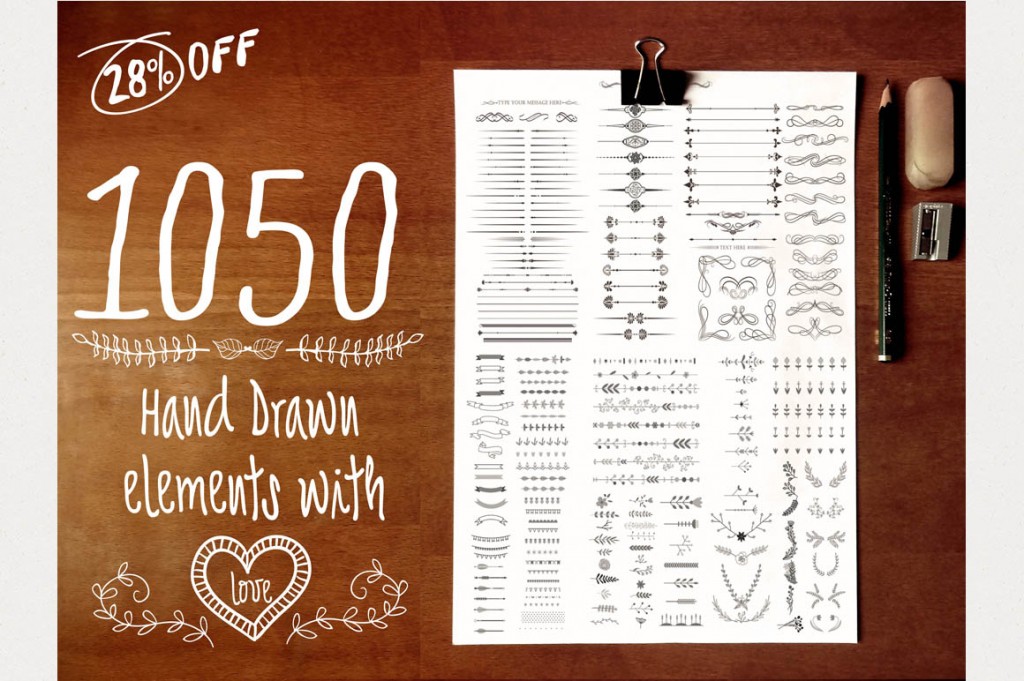 28% OFF
1050
Hand Drawn
elements with
love
TYPE YOUR MESSAGE HERE
TEXT HERE